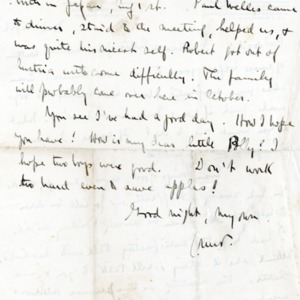 Paul Welles came
to dinner, & to the meeting, helped us, &
was quite his nicest self. Robert got out of
Austria with some difficulty. The family
will probably come over here in October.
You see I've had a good day. How I hope
you have! How is my dear little Polly? I
hope the boys were good. Don't work
too hard even to save apples!
Good night, my own